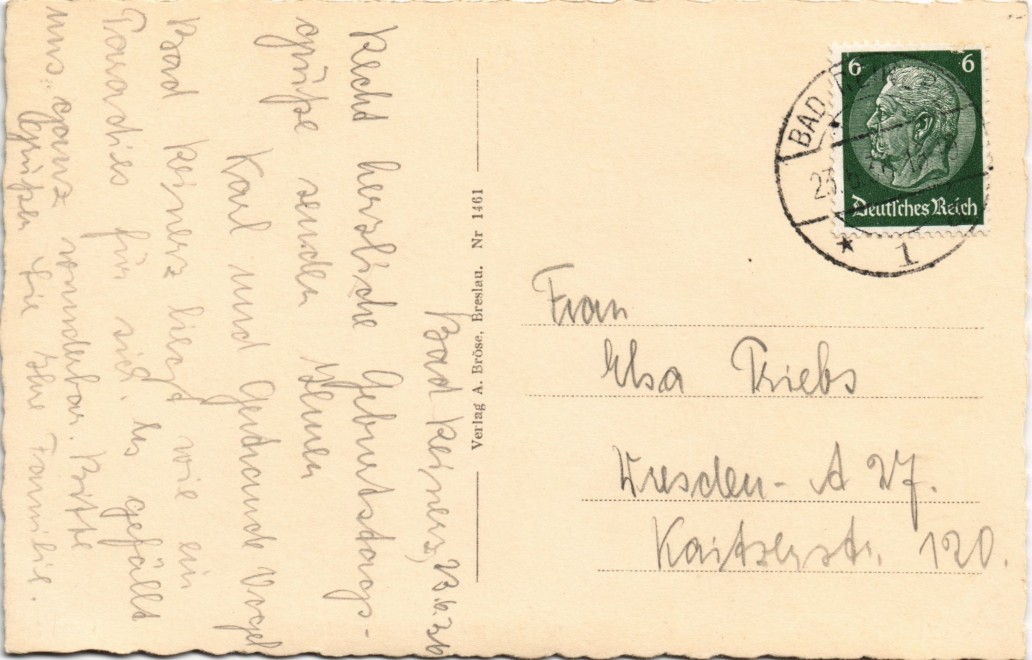 Bad Reinerz, 23.6.36
Recht herzliche Geburtstags-
grüße senden Ihnen
Karl und Gertraude Vogel
Bad Reinerz liegt wie ein
Paradies für sich. Es gefällt
uns ganz wunderbar. Bitte
Grüßen Sie Ihre Familie.
Verlag A. Bröse, Breslau. Nr 1461
6 6
Deutsches Reich
BAD
23.
1
Frau
Elsa Triebs
Dresden - A 27.
Kaitzerstr. 120.